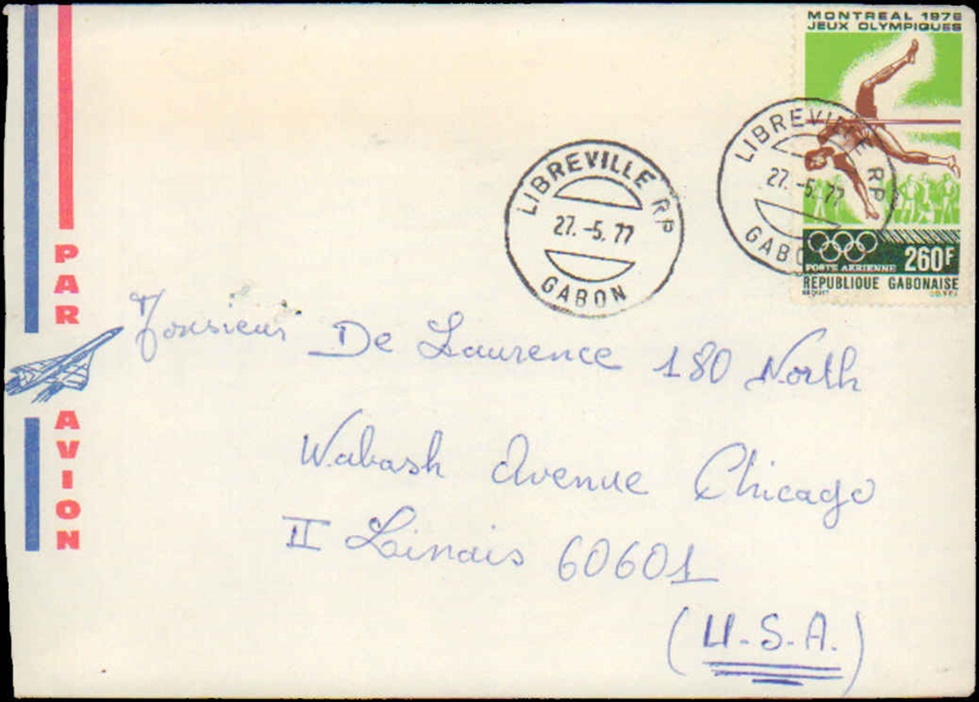 MONTREAL 1976
JEUX OLYMPIQUES
LIBREVILLE RP
27.-5.77
GABON
LIBREVILLE RP
27.-5.77
GABON
POSTE AERIENNE 260F
REPUBLIQUE GABONAISE
PAR AVION
Monsieur De Laurence 180 North
Wabash Avenue Chicago
II Linais 60601
(U.S.A.)